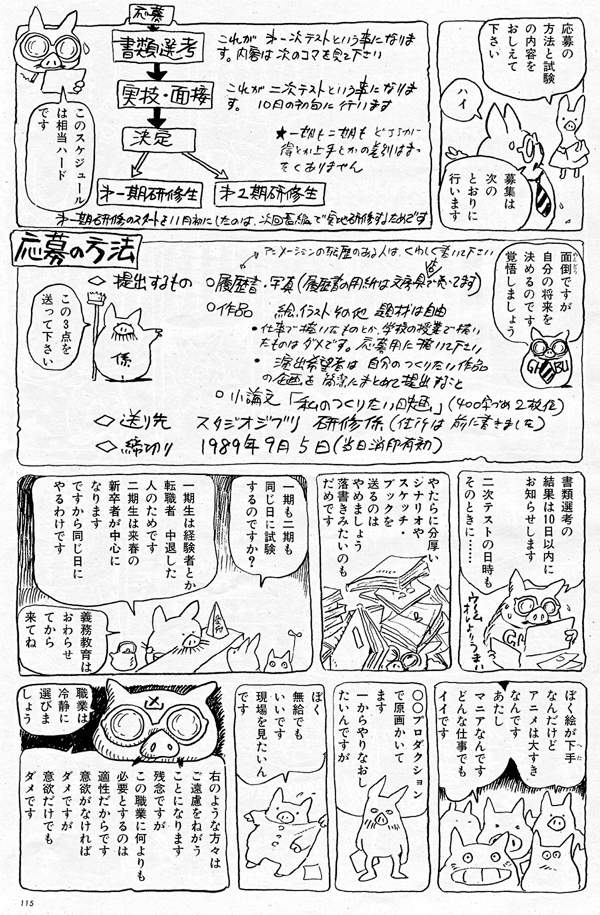 応募の
方法と試験
の内容を
おしえて
下さい
ハイ
募集は
次の
とおりに
行います
応募
書類選考
実技・面接
決定
第一期研修生
第2期研修生
これが 第一次テストという事になりま
す。内容は次のコマを見て下さい
これが二次テストという事になります。
10月の初旬に行います
★一期も二期も どちらかに
得とか上手とかの差別はまっ
たくありません
このスケジュール
は相当ハード
です
第一期研修のスタートを11月初にしたのは、次回長編で実地研修するためです
面倒ですが
自分の将来を
決めるのです
覚悟しましょう
GHIBU
応募の方法
アニメーションの経歴のある人は、くわしく書いて下さい
◇提出するもの
○履歴書・写真(履歴書の用紙は文房具店で売ってます)
○作品 絵、イラストその他 題材は自由
・仕事で描いたものとか、学校の授業で描い
たものはダメです。応募用に描いて下さい
・演出希望者は 自分のつくりたい作品
の企画を簡潔にまとめて提出すること
○小論文「私のつくりたい映画」(400字づめ2枚位)
◇送り先 スタジオジブリ 研修係(住所は前に書きました)
◇締切り 1989年9月5日(当日消印有効)
この3点を
送って下さい
係
書類選考の
結果は10日以内に
お知らせします
二次テストの日時も
そのときに……
ウーム
オレよりうまい
やたらに分厚い
シナリオや
スケッチ・
ブックを
送るのは
やめましょう
落書きみたいのも
だめです
一期も二期も
同じ日に試験
するのですか?
一期生は経験者とか
転職者 中退した
人のためです
二期生は来春の
新卒者が中心に
なります
ですから同じ日に
やるわけです
義務教育は
おわらせ
てから
来てね
ぼく絵が下手
へた
なんだけど
アニメは大すき
なんです
あたし
マニアなんです
どんな仕事でも
イイです
○○プロダクション
で原画かいて
ます
一からやりなおし
たいんですが
ぼく
無給でも
いいです
現場を見たいん
です
職業は
冷静に
選びま
しょう
右のような方々は
ご遠慮をねがう
ことになります
残念ですが
この職業に何よりも
必要とするのは
適性だからです
意欲がなければ
ダメですが
意欲だけでも
ダメです
115